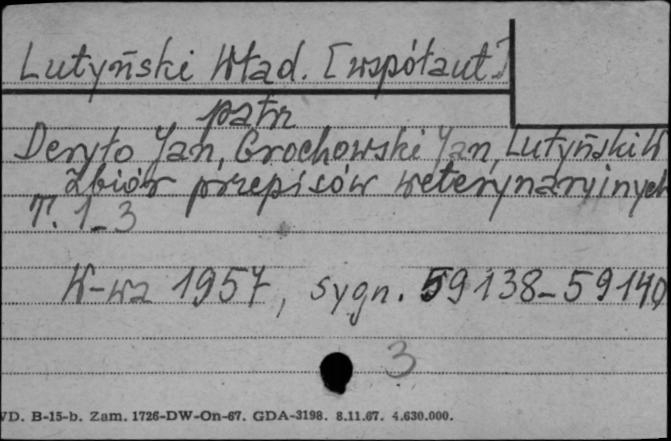 Lutyński Wład. [współaut.]
patrz
Deryło Jan, Grochowski Jan, Lutyński W
Zbiór przepisów weterynaryjnych
T. 1-3
W-wa 1957, sygn. 59138-59140
3
VD. B-15-b. Zam. 1726-DW-On-67. GDA-3198. 8.11.67. 4.630.000.